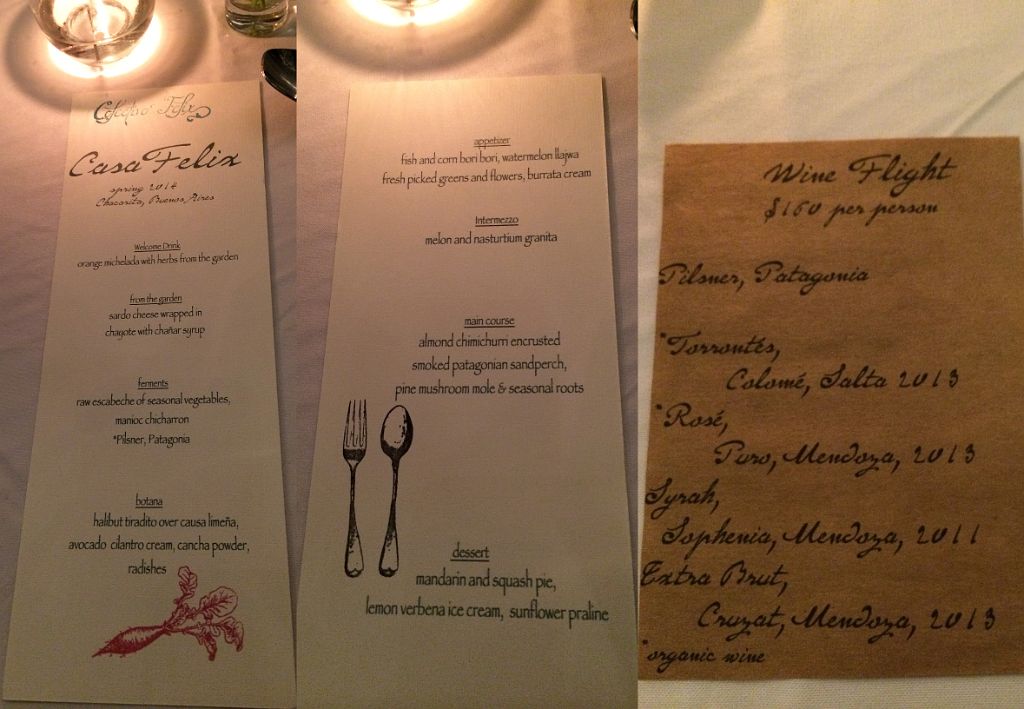 Colectivo Felix
Casa Felix
spring 2014
Chacarita, Buenos Aires
Welcome Drink
orange michelada with herbs from the garden
from the garden
sardo cheese wrapped in
chayote with chañar syrup
ferments
raw escabeche of seasonal vegetables,
manioc chicharron
*Pilsner, Patagonia
botana
halibut tiradito over causa limeña,
avocado cilantro cream, cancha powder,
radishes
appetizer
fish and corn bori bori, watermelon llajwa
fresh picked greens and flowers, burrata cream
Intermezzo
melon and nasturtium granita
main course
almond chimichurri encrusted
smoked patagonian sandperch,
pine mushroom mole & seasonal roots
dessert
mandarin and squash pie,
lemon verbena ice cream, sunflower praline
Wine Flight
$160 per person
Pilsner, Patagonia
*Torrontés,
Colomé, Salta 2013
*Rosé,
Puro, Mendoza, 2013
Syrah,
Sophenia, Mendoza, 2011
Extra Brut,
Cruzat, Mendoza, 2013
*organic wine